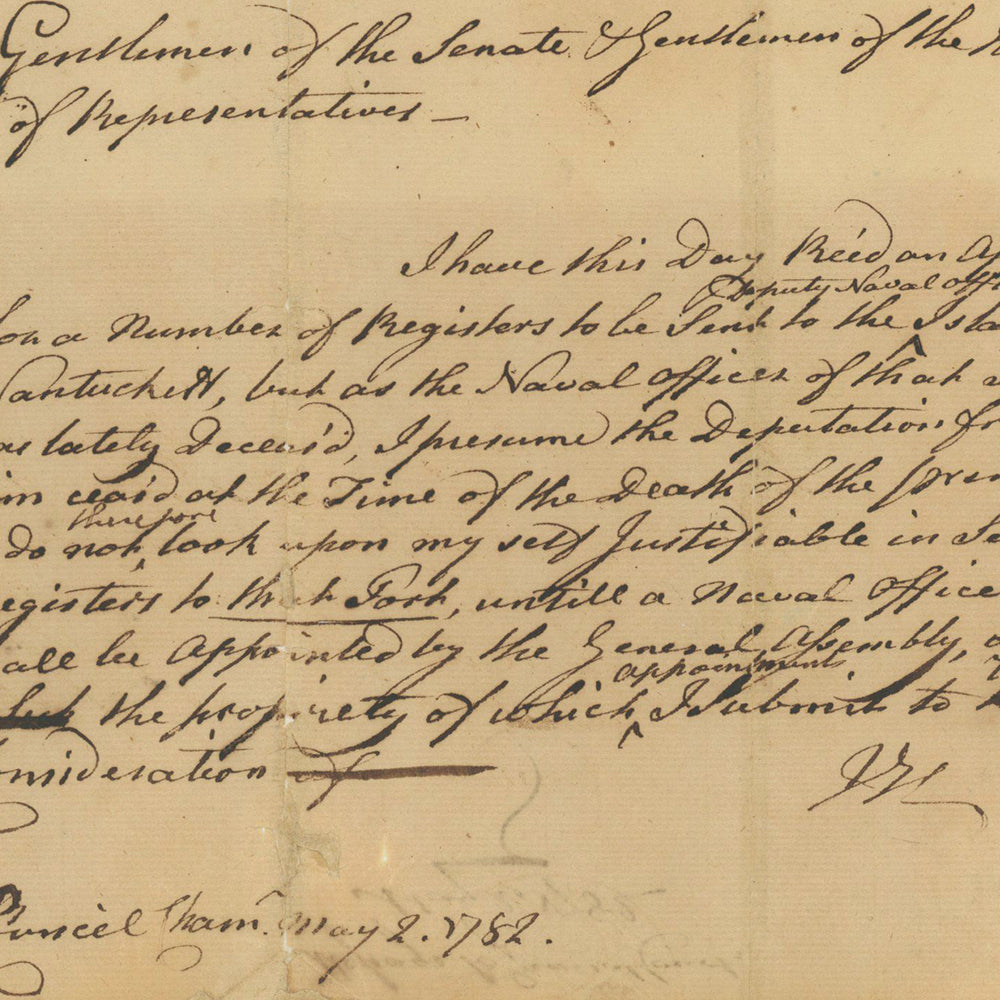 Gentlemen of the Senate & Gentlemen of the
of Representatives —
I have this Day Rec'd an
Deputy Naval Offi
for a Number of Registers to be Sent to the Isla
Nantuckett, but as the Naval Officer of that
as lately Deceas'd, I presume the Deputation fr
im ceas'd at the Time of the Death of the prin
therefore
do not look upon my self Justifiable in Se
egisters to that Port, untill a Naval Office
all be Appointed by the General Assembly,
appointment
the propriety of which I Submit to
onsideration of
JH
ouncil Cham.r May 2. 1782.